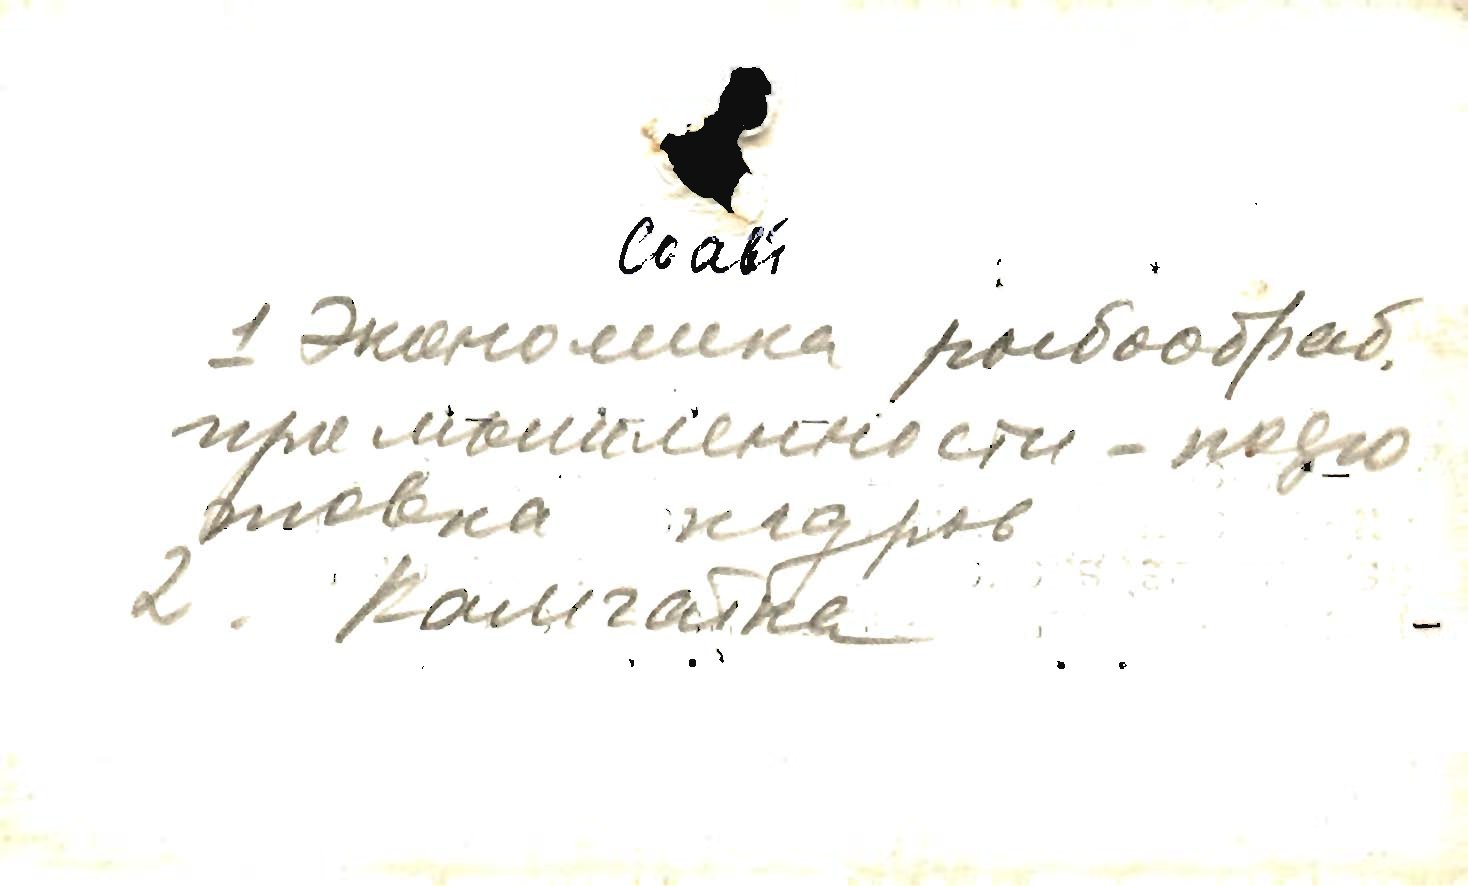 Соавт
1 Экономика рыбообраб.
промышленности - подго
товка кадров
2. Камчатка